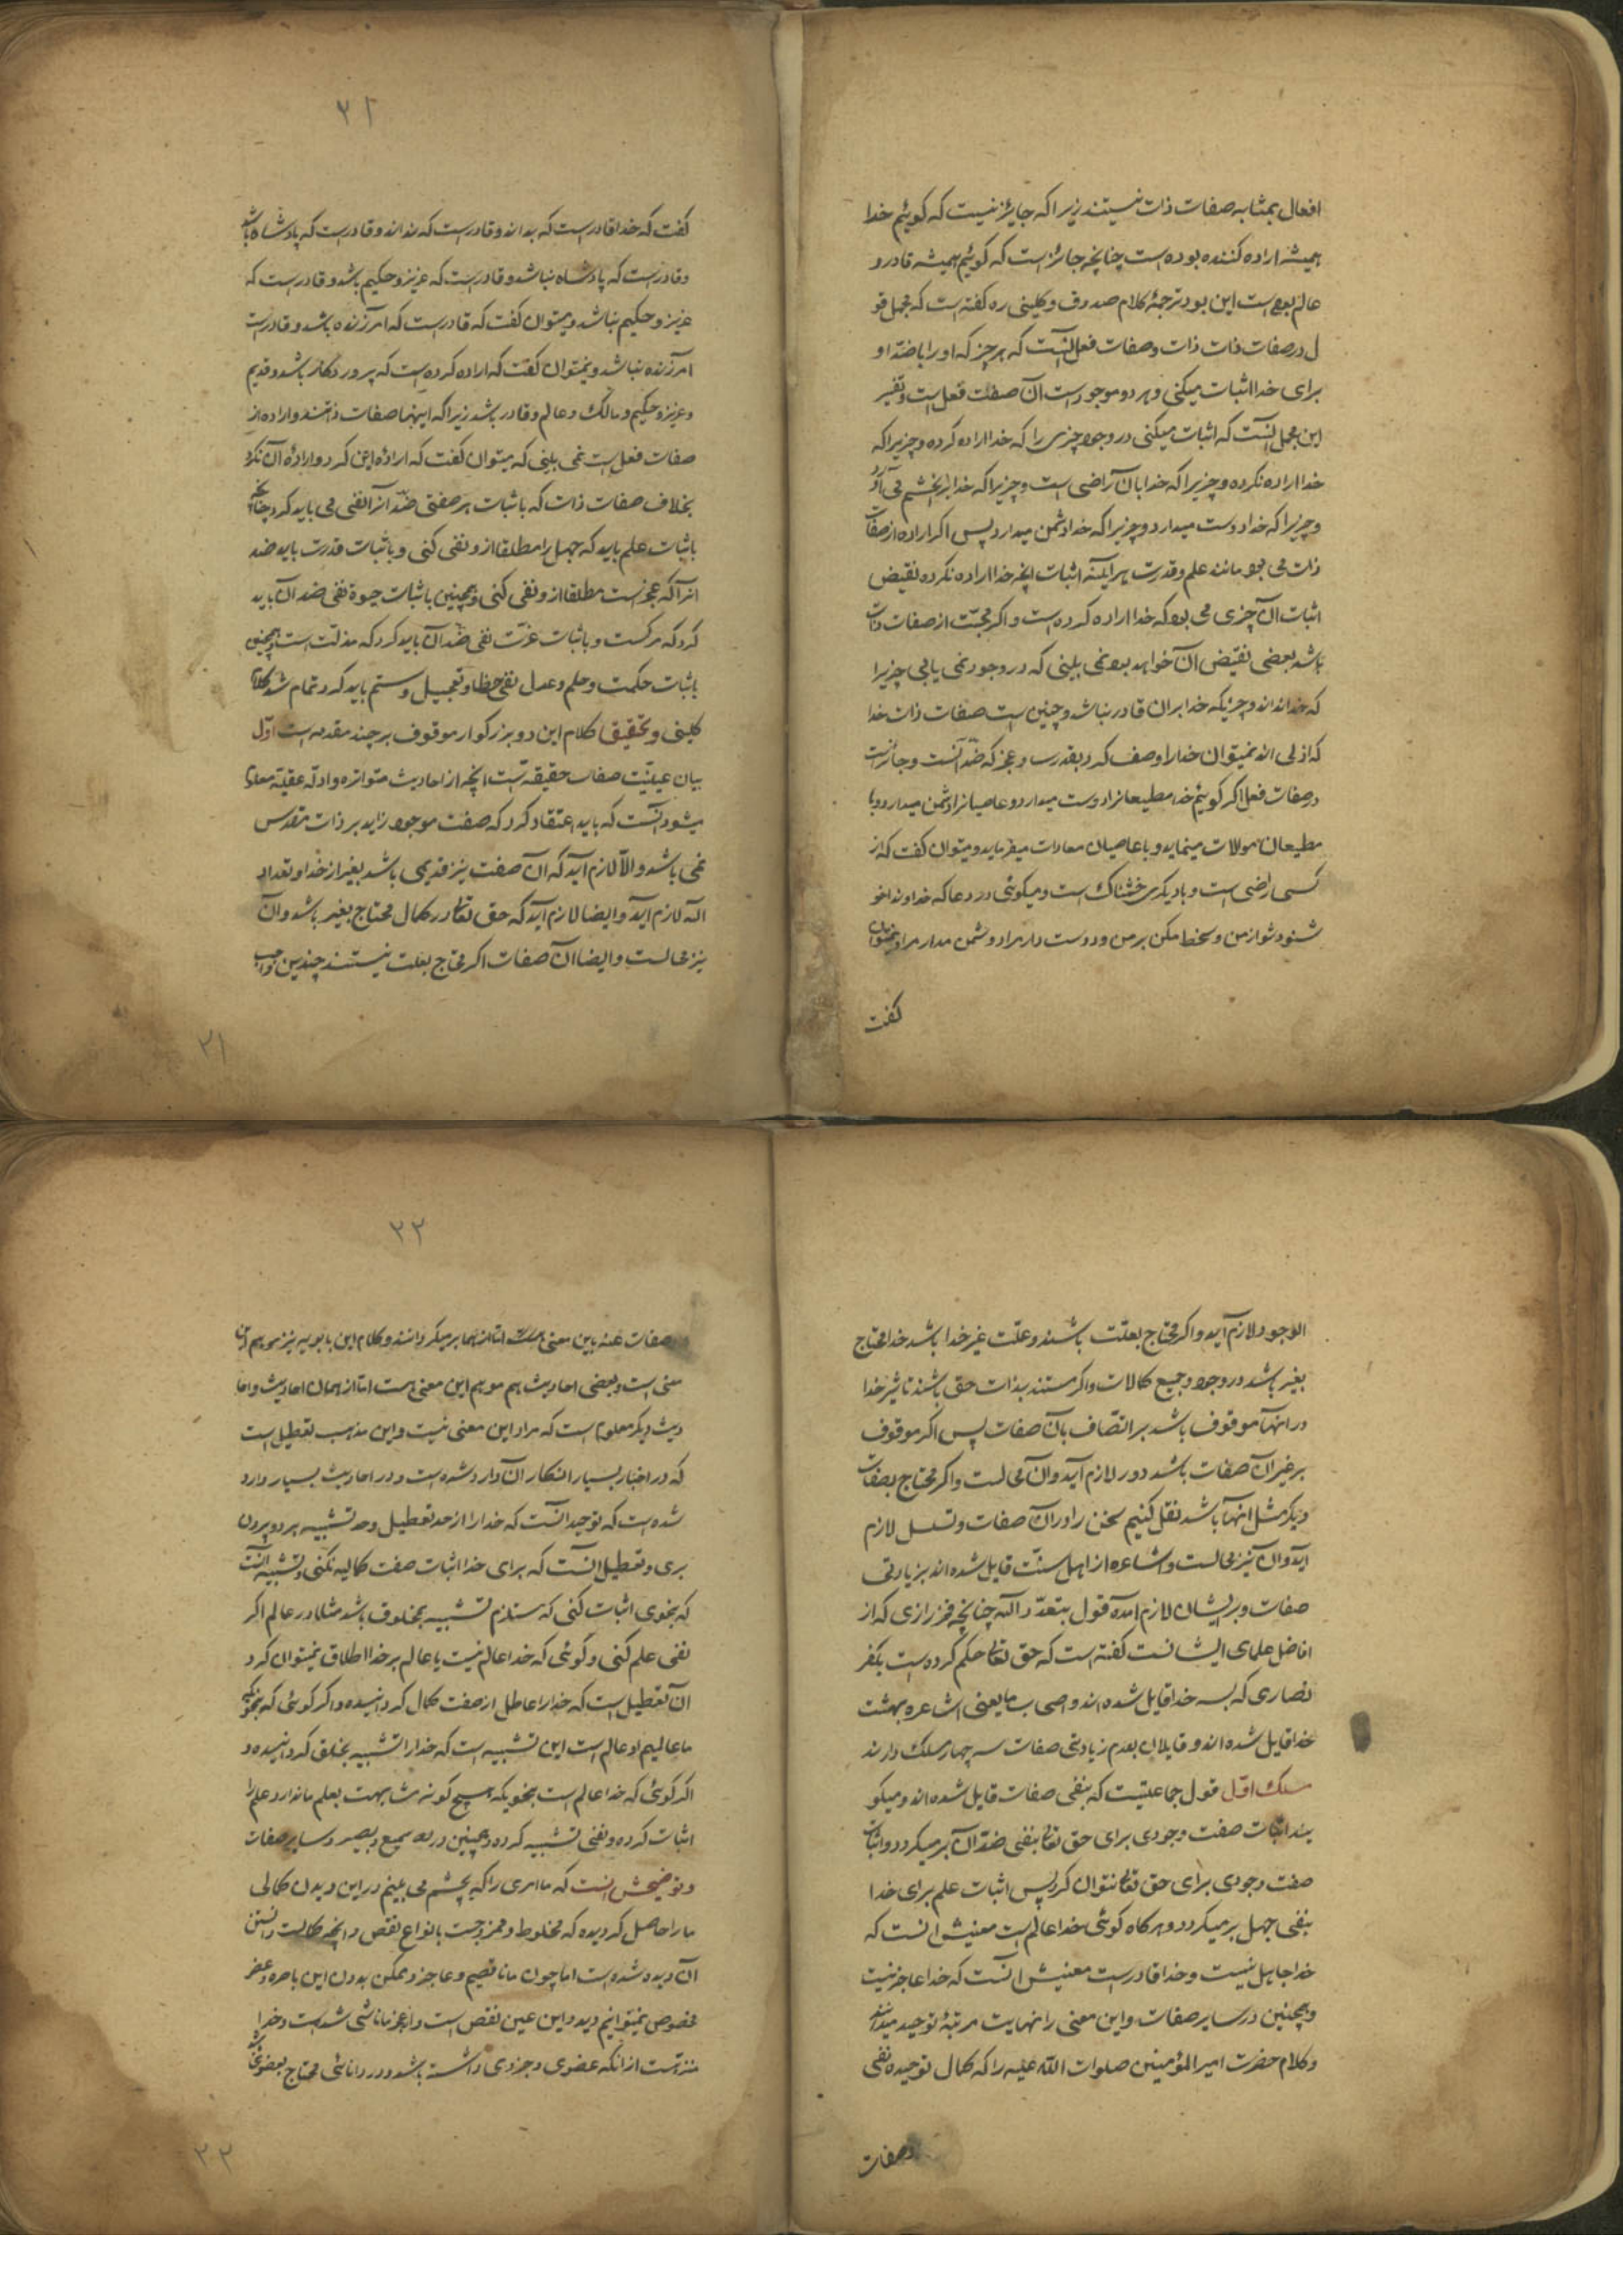 افعال بمثابه صفات ذات نیستند زیرا که جایز نیست که گوئیم خدا
همیشه اراده کننده بوده است چنانچه جائز است که گوئیم همیشه قادر و
عالم بوده است این بود ترجمهٔ کلام صدوق و کلینی ره گفته است که مجمل قو
ل در صفات ذات و صفات فعل آنست که هر چیز که او را با ضد او
برای خدا اثبات میکنی و هر دو موجود است آن صفت فعل است و تفسیر
این مجمل آنست که اثبات میکنی در وجود چیزی را که خدا اراده کرده و چیزیرا که
خدا اراده نکرده و چیزیرا که خدا بآن راضی است و چیزیرا که خدا را بخشم می آورد
و چیزیرا که خدا دوست میدارد و چیزیرا که خدا دشمن میدارد پس اگر اراده از صفات
ذات می بود مانند علم و قدرت هر آینه اثبات آنچه خدا اراده نکرده نقیض
اثبات آن چیزی می بود که خدا اراده کرده است و اگر محبت از صفات ذات
باشد بعضی نقیض آن خواهد بود نمی بینی که در وجود نمی یابی چیزیرا
که خدا نداند و چیزیکه خدا بران قادر نباشد و چنین است صفات ذات خدا
که ازلی اند نمیتوان خدا را وصف کرد بقدرت و عجز که ضد آنست و جائز است
در صفات فعل اگر گوئیم خدا مطیعانرا دوست میدارد و عاصیانرا دشمن میدارد و با
مطیعان موالات مینماید و با عاصیان معادات میفرماید و میتوان گفت که از
کسی راضی است و با دیگری خشمناک است و میگوئی در دعا که خداوندا خو
شنود شو از من و سخط مکن بر من و دوست دار مرا و دشمن مدار مرا و نمیتوان
گفت
۲۱
گفت که خدا قادر است که بداند و قادر است که نداند و قادر است که پادشاه باشد
و قادر است که پادشاه نباشد و قادر است که عزیز و حکیم باشد و قادر است که
عزیز و حکیم نباشد و میتوان گفت که قادر است که آمرزنده باشد و قادر است
آمرزنده نباشد و نمیتوان گفت که اراده کرده است که پروردگار باشد و قدیم
و عزیز و حکیم و مالک و عالم و قادر باشد زیرا که اینها صفات ذاتند و اراده از
صفات فعل است نمی بینی که میتوان گفت که ارادهٔ این کرد و ارادهٔ آن نکرد
بخلاف صفات ذات که باثبات هر صفتی ضد آنرا نفی می باید کرد چنانچه
باثبات علم باید که جهل را مطلقا ازو نفی کنی و باثبات قدرت باید ضد
آنرا که عجز است مطلقا ازو نفی کنی و همچنین باثبات حیوة نفی ضد آن باید
کرد که مرگست و باثبات عزت نفی ضد آن باید کرد که مذلت است و همچنین
باثبات حکمت و حلم و عدل نفی خطا و تعجیل و ستم باید کرد تمام شد کلام
کلینی و تحقیق کلام این دو بزرگوار موقوف بر چند مقدمه است اول
بیان عینیت صفات حقیقه تست آنچه از احادیث متواتره و ادلهٔ عقلیه معلوم
میشود آنست که باید اعتقاد کرد که صفت موجود زاید بر ذات مقدس
نمی باشد والا لازم آید که آن صفت نیز قدیمی باشد بغیر از خدا و تعداد
اله لازم آید و ایضا لازم آید که حق تعالی در کمال محتاج بغیر باشد و آن
نیز محالست و ایضا آن صفات اگر محتاج بعلت نیستند چندین واجب
۲۱
الوجود لازم آید و اگر محتاج بعلت باشند و علت غیر خدا باشد خدا محتاج
بغیر باشد در وجود و جمیع کمالات و اگر مستند بذات حق باشند تاثیر خدا
در آنها موقوف باشد بر اتصاف بآن صفات پس اگر موقوف
بر غیر آن صفات باشد دور لازم آید و آن محالست و اگر محتاج بصفات
دیگر مثل آنها باشد نقل کنیم سخن را در آن صفات و تسلسل لازم
آید و آن نیز محالست و اشاعره از اهل سنت قایل شده اند بزیادتی
صفات و بر ایشان لازم آمده قول بتعدد آلهه چنانچه فخر رازی که از
افاضل علمای ایشانست گفته است که حق تعالی حکم کرده است بکفر
نصاری که بسه خدا قایل شده اند و اصحاب ما یعنی اشاعره بهشت
خدا قایل شده اند و قایلان بعدم زیادتی صفات سه چهار مسلک دارند
مسلک اول قول جماعتیست که بنفی صفات قایل شده اند و میگو
یند اثبات صفت وجودی برای حق تعالی بنفی ضد آن بر میگردد و اثبات
صفت وجودی برای حق تعالی نتوان کرد پس اثبات علم برای خدا
بنفی جهل بر میگردد و هر گاه گوئی خدا عالم است معنیش آنست که
خدا جاهل نیست و خدا قادر است معنیش آنست که خدا عاجز نیست
و همچنین در سایر صفات و این معنی را نهایت مرتبهٔ توحید میدانند
و کلام حضرت امیر المؤمنین صلوات الله علیه را که کمال توحیده نفی
صفات
۲۲
صفات عنه باین معنی است اتا از بهابر میگردانند و کلام ابن بابویه نیز موهم این
معنی است و بعضی احادیث هم موهم این معنی هست اما از همان احادیث و احا
دیث دیگر معلوم است که مراد این معنی نیست و این مذهب تعطیل است
که در اخبار بسیار انکار آن وارد شده است و در احادیث بسیار وارد
شده است که توحید آنست که خدا را از حد تعطیل و حد تشبیه هر دو بیرون
بری و تعطیل آنست که برای خدا اثبات صفت کمالیه نکنی و تشبیه آنست
که بنحوی اثبات کنی که مستلزم تشبیه بمخلوق باشد مثلا در عالم اگر
نفی علم کنی و گوئی که خدا عالم نیست یا عالم بر خدا اطلاق نمیتوان کرد
آن تعطیل است که خدا را عاطل از صفت کمال گردانیده و اگر گوئی که بنحویکه
ما عالمیم او عالم است این تشبیه است که خدا را تشبیه بخلق گردانیده و
اگر گوئی که خدا عالم است بنحویکه هیچ گونه مشابهت بعلم ما ندارد علم را
اثبات کرده و نفی تشبیه کرده و همچنین در سمیع و بصیر و سایر صفات
و توضیحش آنست که ما امری را که بچشم می بینیم در این دیدن کمالی
ما را حاصل گردیده که مخلوط و ممزوجست بانواع نقص و آنچه کمالست دانستن
آن دیده شده است اما چون ما ناقصیم و عاجز و ممکن بدون این باصره و عضو
مخصوص نمیتوانیم دید و این عین نقص است و از عجز ما ناشی شده است و خدا
منزهست از آنکه عضوی و جزوی داشته باشد و در دانائی محتاج بعضوی
۲۲